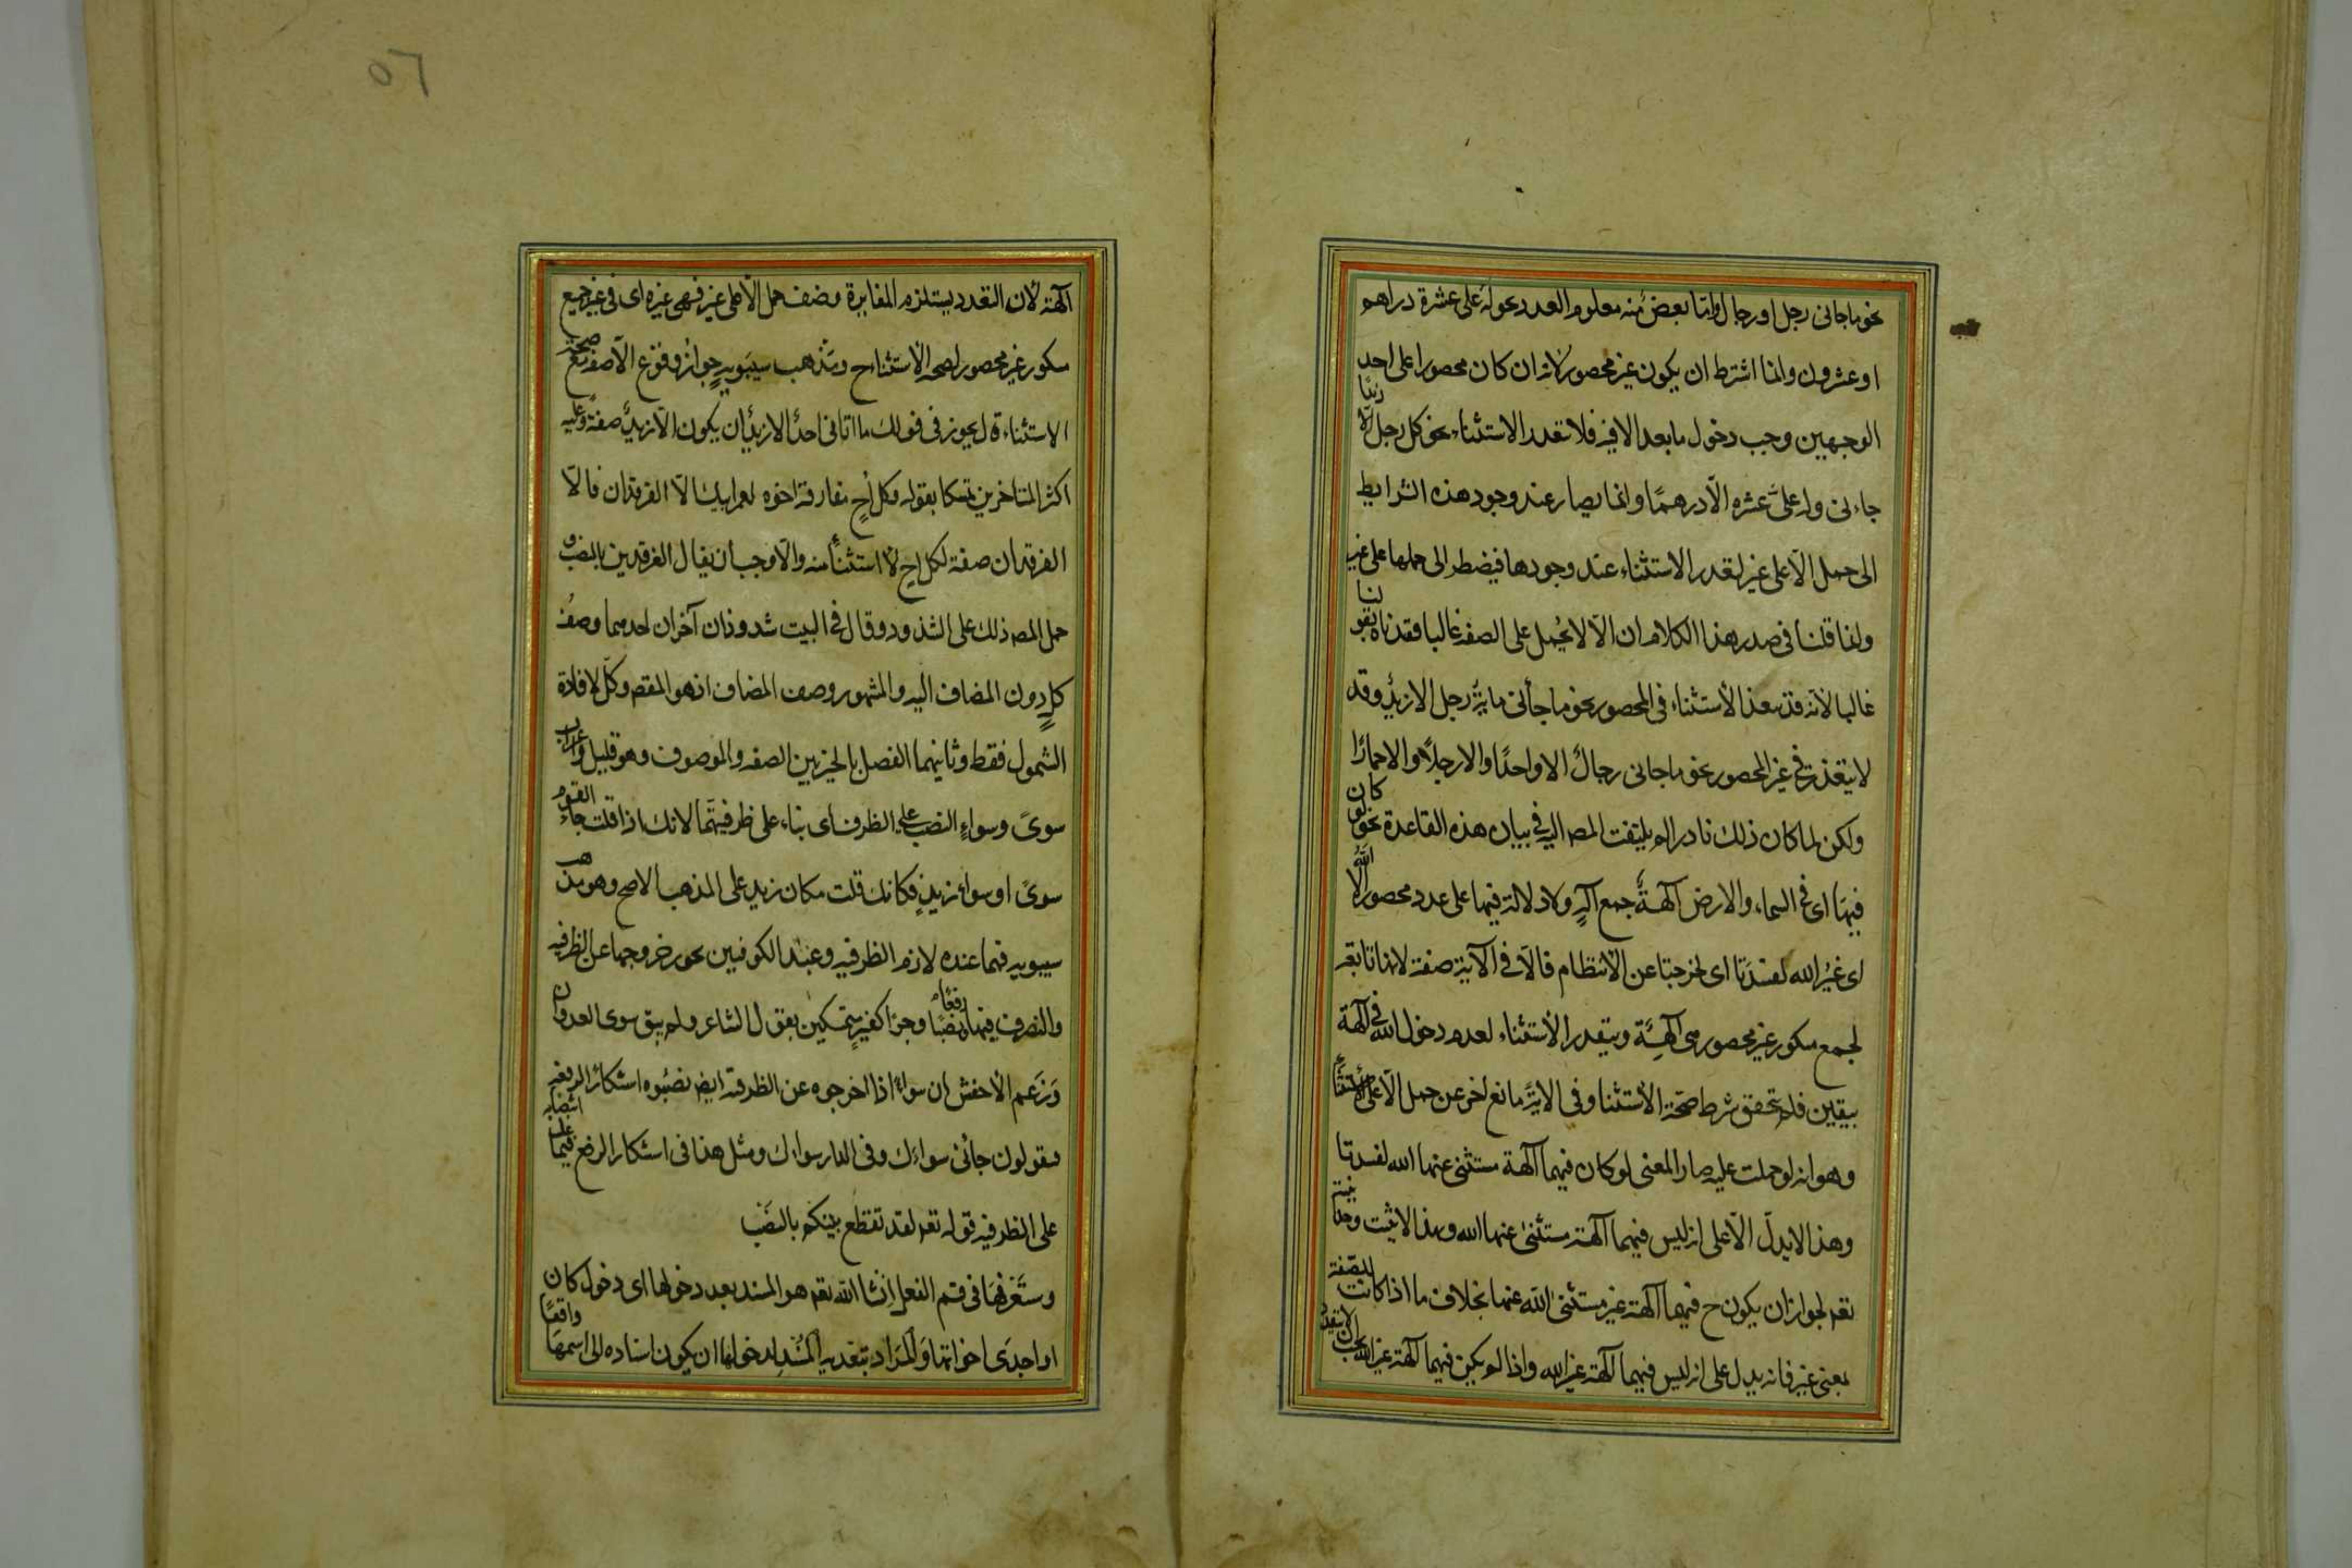 نحو ما جاءنى رجل او رجال واما بعض منه معلوم العدد نحو له على عشرة دراهم
او عشرون وانما اشترط ان يكون غير محصور لانه ان كان محصورا على احد
الوجهين وجب دخول ما بعد الا فيه فلا تعذر الاستثناء نحو كل رجل الا زيدا
جاءنى وله علىّ عشره الّا درهمًا وانما يصار عند وجود هذه الشرايط
الى حمل الّا على غير لتعذر الاستثناء عند وجودها فيضطر الى حملها على غير
وانما قلنا فى صدر هذا الكلام ان الّا لا يحمل على الصفه غالبا فقيدناه بقولنا
غالبا لانه قد يتعذر الاستثناء فى المحصور نحو ما جاءنى مائة رجل الا زيد وقد
لا يتعذر فى غير المحصور نحو ما جاءنى رجال الا واحدًا والا رجلًا والا حمارًا
ولكن لما كان ذلك نادرا لم يلتفت المصـ اليه فى بيان هذه القاعدة نحو لو كان
فيهما اى فى السماء والارض آلهةٌ جمع اله ولا دلالة فيها على عدد محصور الا الله
اى غيرُ الله لفسدتا اى لخرجتا عن الانتظام فالّا فى الآية صفة لانها تابعة
لجمع منكور غير محصور هى آلهة ويتعذر الاستثناء لعدم دخول الله فى آلهة
بيقين فلم يتحقق شرط صحة الاستثنا وفى الاية مانع اخر عن حمل الّا على الاستثناء
وهو انه لو حملت عليه صار المعنى لو كان فيهما آلهة مستثنى عنها الله لفسدتا
وهذا لا يدل الّا على انه ليس فيهما آلهة مستثنى عنها الله وبهذا لا يثبت وحدانيته
تعـ لجواز ان يكون ح فيهما آلهة غير مستثنى الله عنها بخلاف ما اذا كانت للصفة
بمعنى غير فانه يدل على انه ليس فيهما آلهة غير الله واذا لم يكن فيهما آلهة غير الله يجب ان لا يتعدد
٥٦
آلهة لان التعدد يستلزم المغايرة وضعف حمل الّا على غير فى غيره اى فى غير جمع
منكور غير محصور لصحة الاستثناء ح ومذهب سيبويه جواز وقوع الّا صفة مع صحة
الاستثناء قال يجوز فى قولك ما اتانى احدٌ الا زيدٌ ان يكون الّا زيدٌ صفة وعليه
اكثر المتاخرين تمسكا بقوله وكل اخٍ مفارقة اخوه لعمر ابيك الّا الفرقدان فالّا
الفرقدان صفة لكل اخ لا استثناء منه والّا وجب ان يقال الفرقدين بالنصب و
حمل المصـ ذلك على الشذوذ وقال فى البيت شذوذان آخران احدهما وصف
كلٍ دون المضاف اليه والمشهور وصف المضاف اذ هو المقصـ وكل لافادة
الشمول فقط وثانيهما الفصل بالخبر بين الصفه والموصوف وهو قليل واعراب
سوىً وسواءٍ النصب على الظرف اى بناء على ظرفيتهما لانك اذا قلت جاء القوم
سوىً او سواء زيد فكانك قلت مكان زيد على المذهب الاصح وهو مذهب
سيبويه فهما عنده لازم الظرفيه وعند الكوفيين يجوز خروجهما عن الظرفيه
والتصرف فيهما رفعًا ونصبًا وجرًا كغير متمسكين بقول الشاعر ولم يبق سوى العدوان
وزعم الاخفش ان سواءً اذا اخرجوه عن الظرفية ايضـ نصبوه استنكارًا لرفعه
فيقولون جاءنى سواءك وفى الدار سواءك ومثل هذا فى استنكار الرفع فيما غلب انتصابه
على الظرفيه قوله تعـ لقد تقطع بينكم بالنصب
وستعرفها فى قسم الفعل ان شا الله تعـ هو المسند بعد دخولها اى دخول كان
او احدى اخواتها والمراد ببعدية المسند لدخولها ان يكون اسناده الى اسمها واقعًا